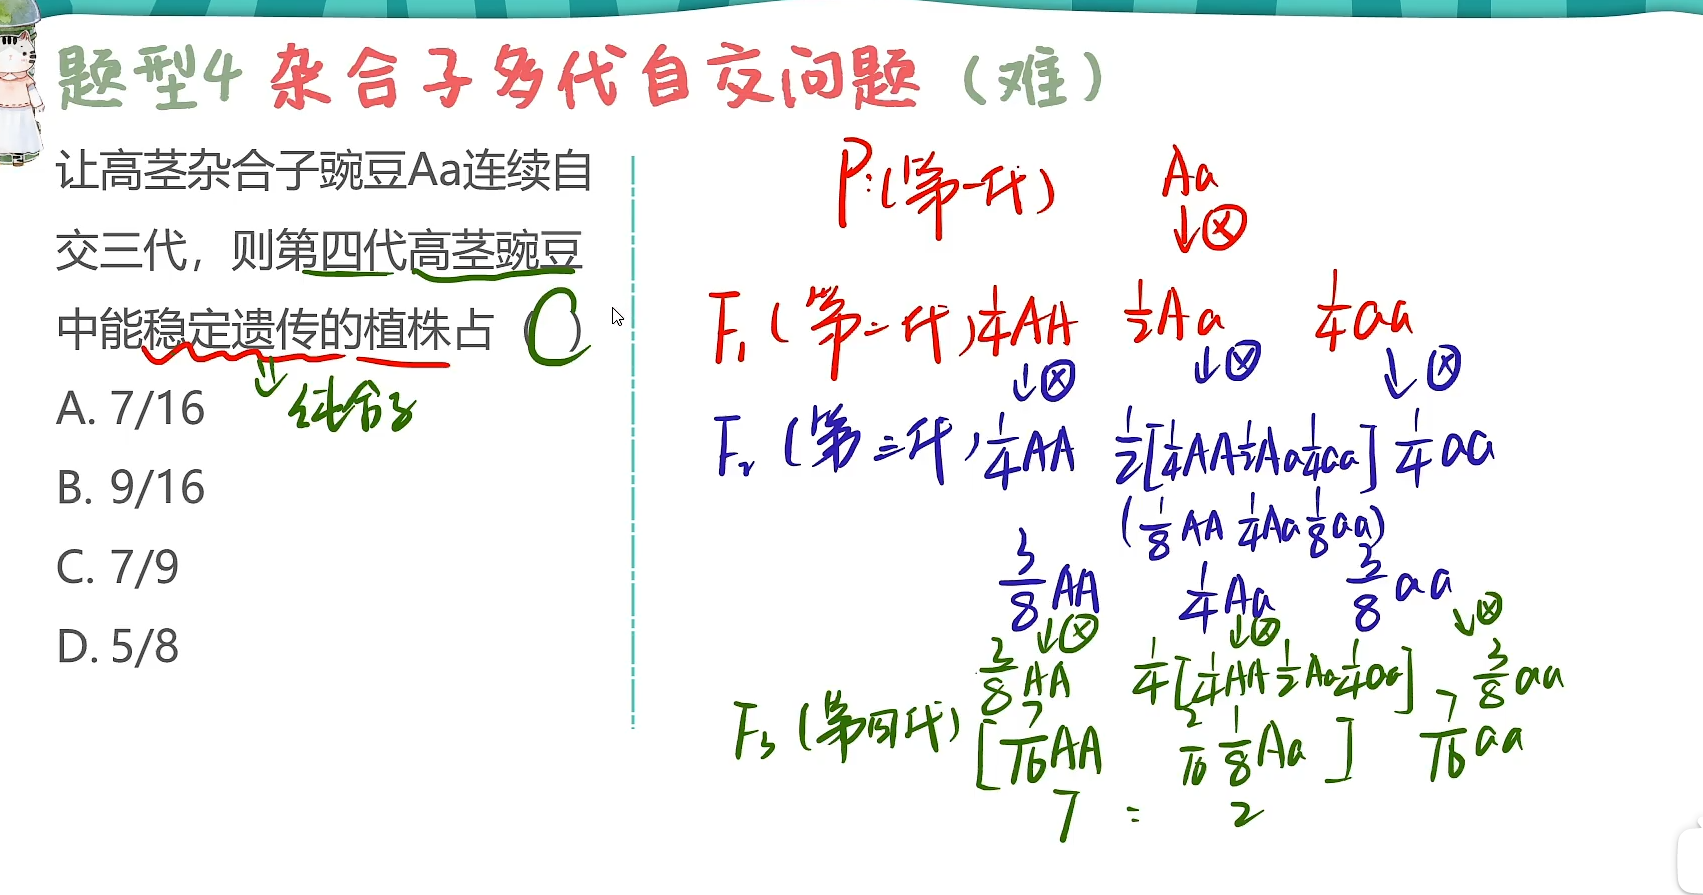 题型4 杂合子多代自交问题（难）
让高茎杂合子豌豆Aa连续自
交三代，则第四代高茎豌豆
中能稳定遗传的植株占（C）
纯合子
A. 7/16
B. 9/16
C. 7/9
D. 5/8
P:(第一代) Aa
↓⊗
F₁(第二代) 1/4AA 1/2Aa 1/4aa
↓⊗ ↓⊗ ↓⊗
F₂(第三代) 1/4AA 1/2[1/4AA 1/2Aa 1/4aa] 1/4aa
(1/8AA 1/4Aa 1/8aa)
3/8AA 1/4Aa 3/8aa
↓⊗ ↓⊗ ↓⊗
3/8AA 1/4[1/4AA 1/2Aa 1/4aa] 3/8aa
F₃(第四代) [7/16AA 2/16 1/8Aa] 7/16aa
7 : 2